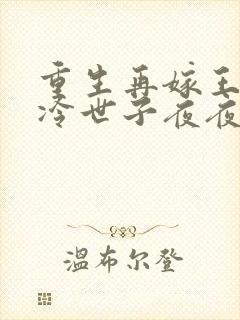 重生再嫁王
冷世子夜夜
温布尔登